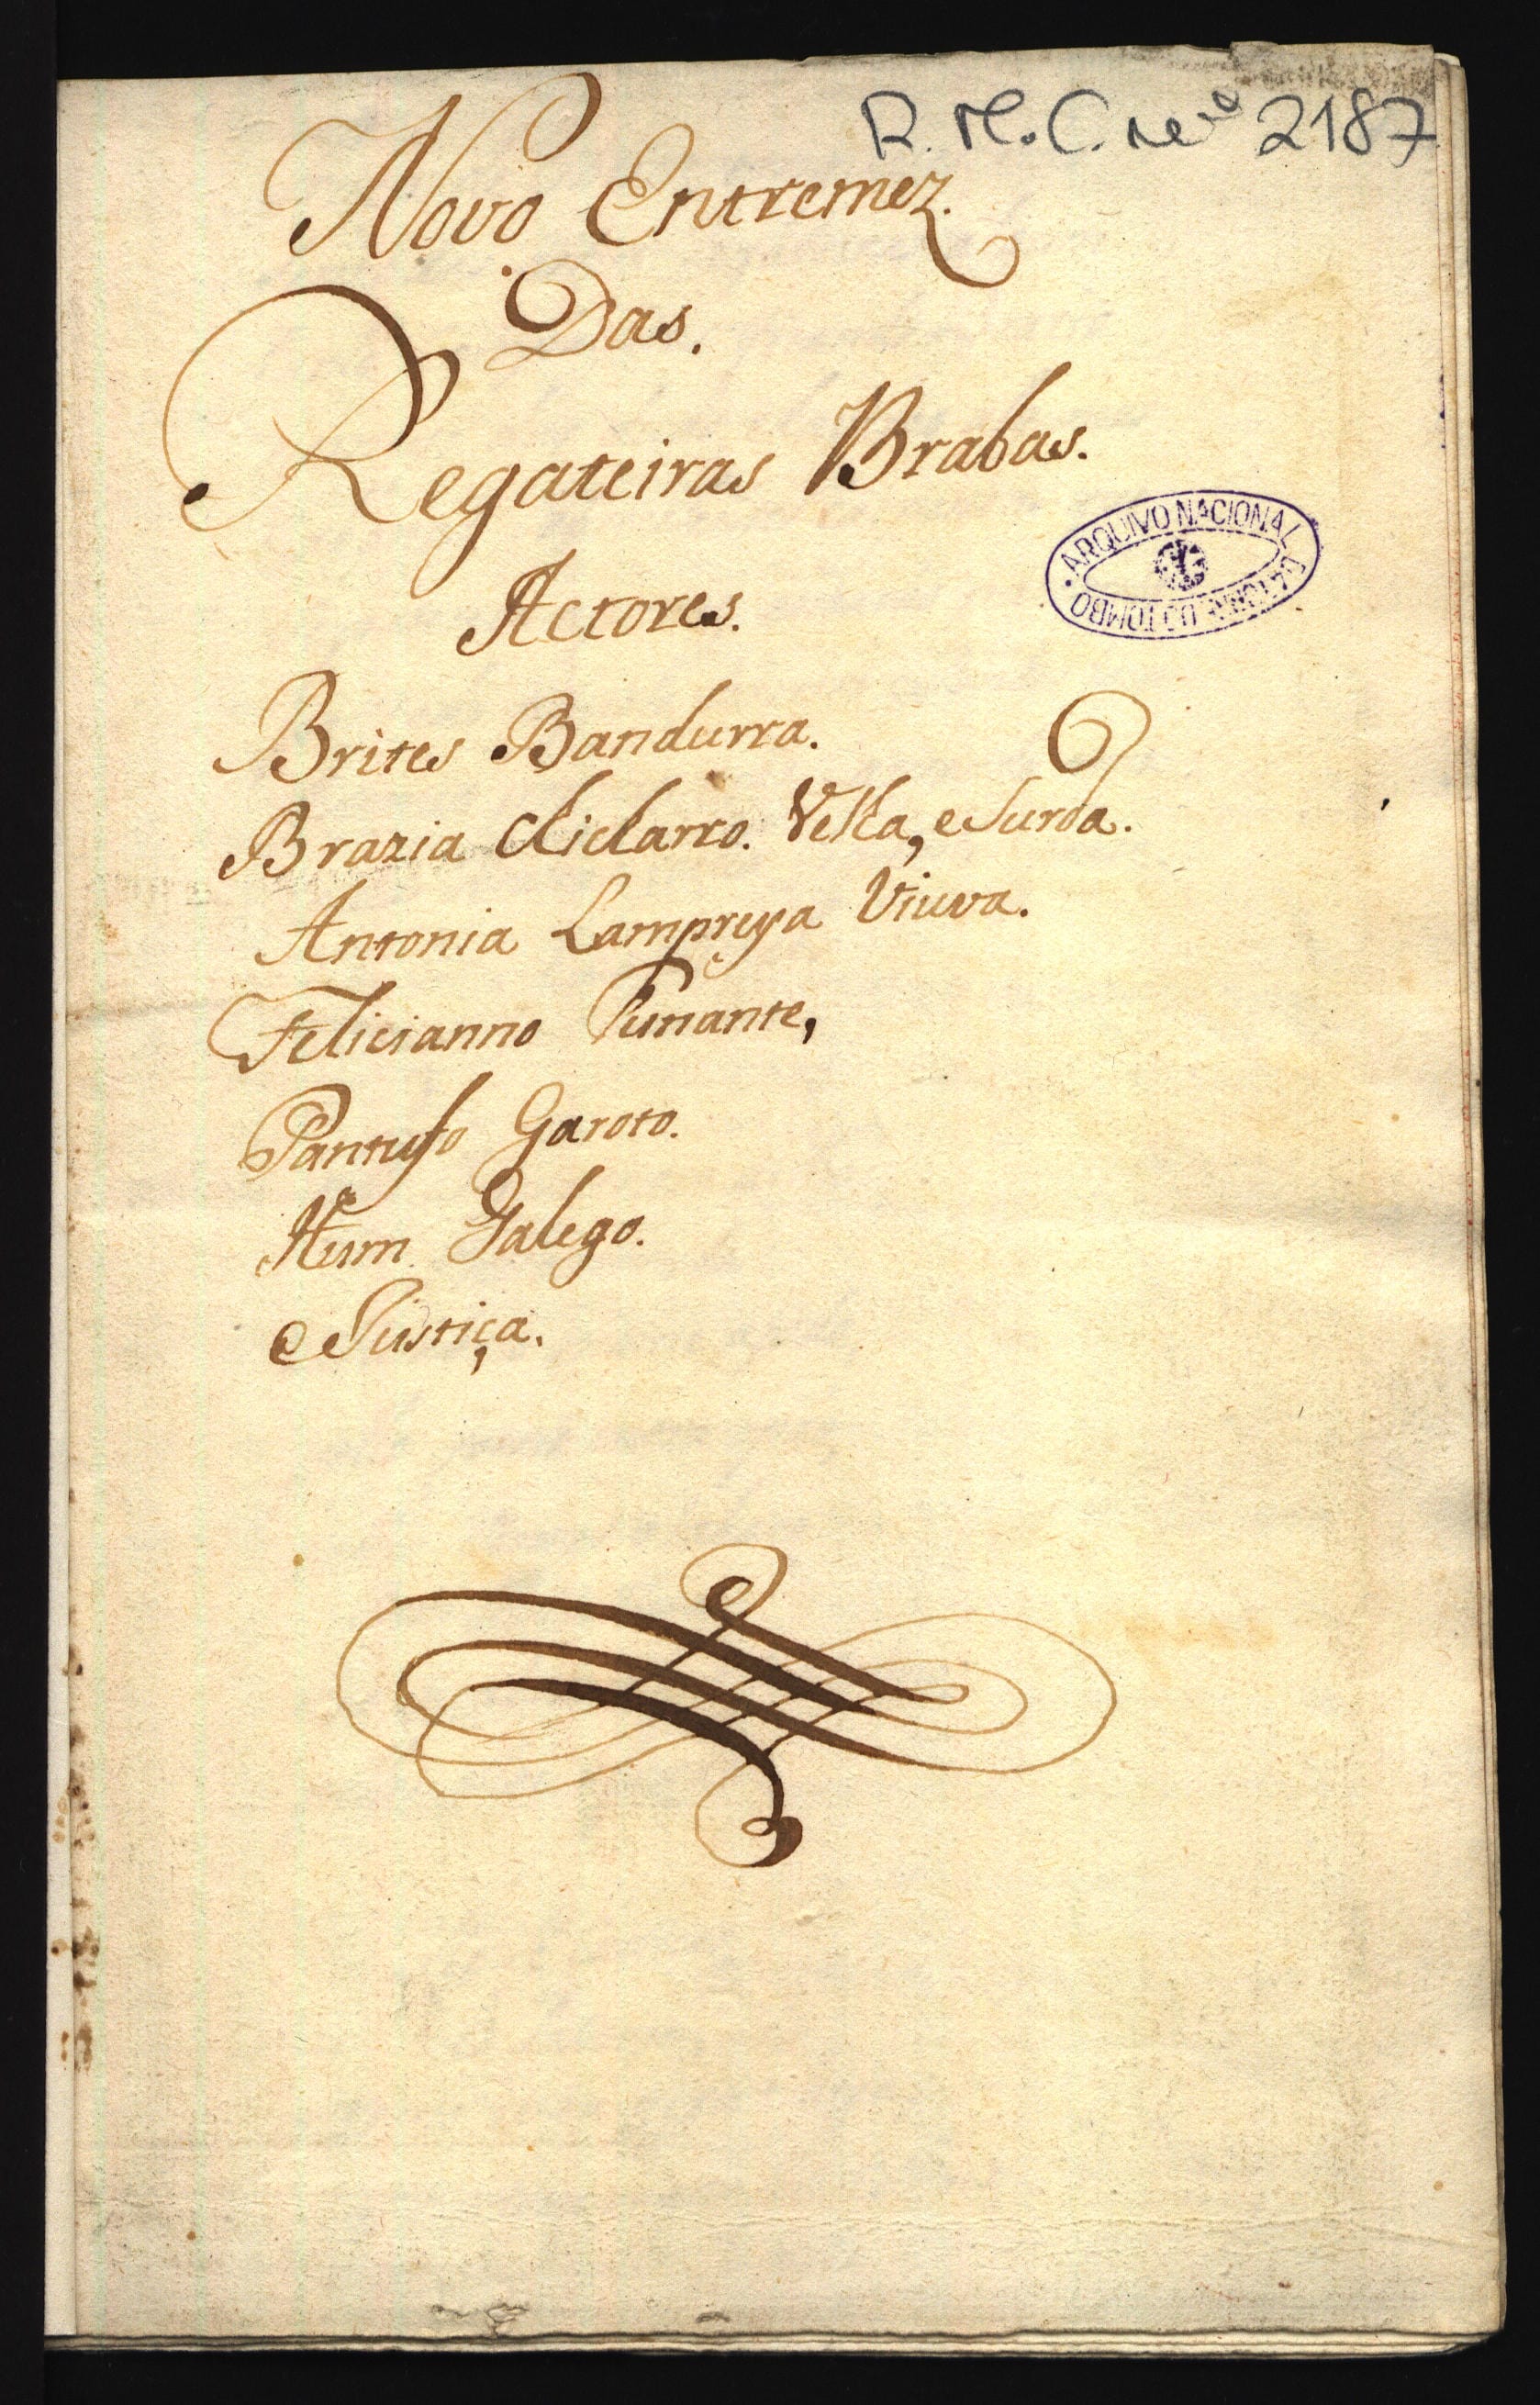 R. M. C. nº 2187
Novo Entremez.
Das.
Regateiras Brabas.
ARQUIVO NACIONAL DA TORRE DO TOMBO
Actores.
Brites Bandurra.
Brazia Chicharro. Velha, e Surda.
Antonia Lampreya Viuva.
Felicianno Tunante,
Pantufo Garoto.
Hum Galego.
e Justiça.